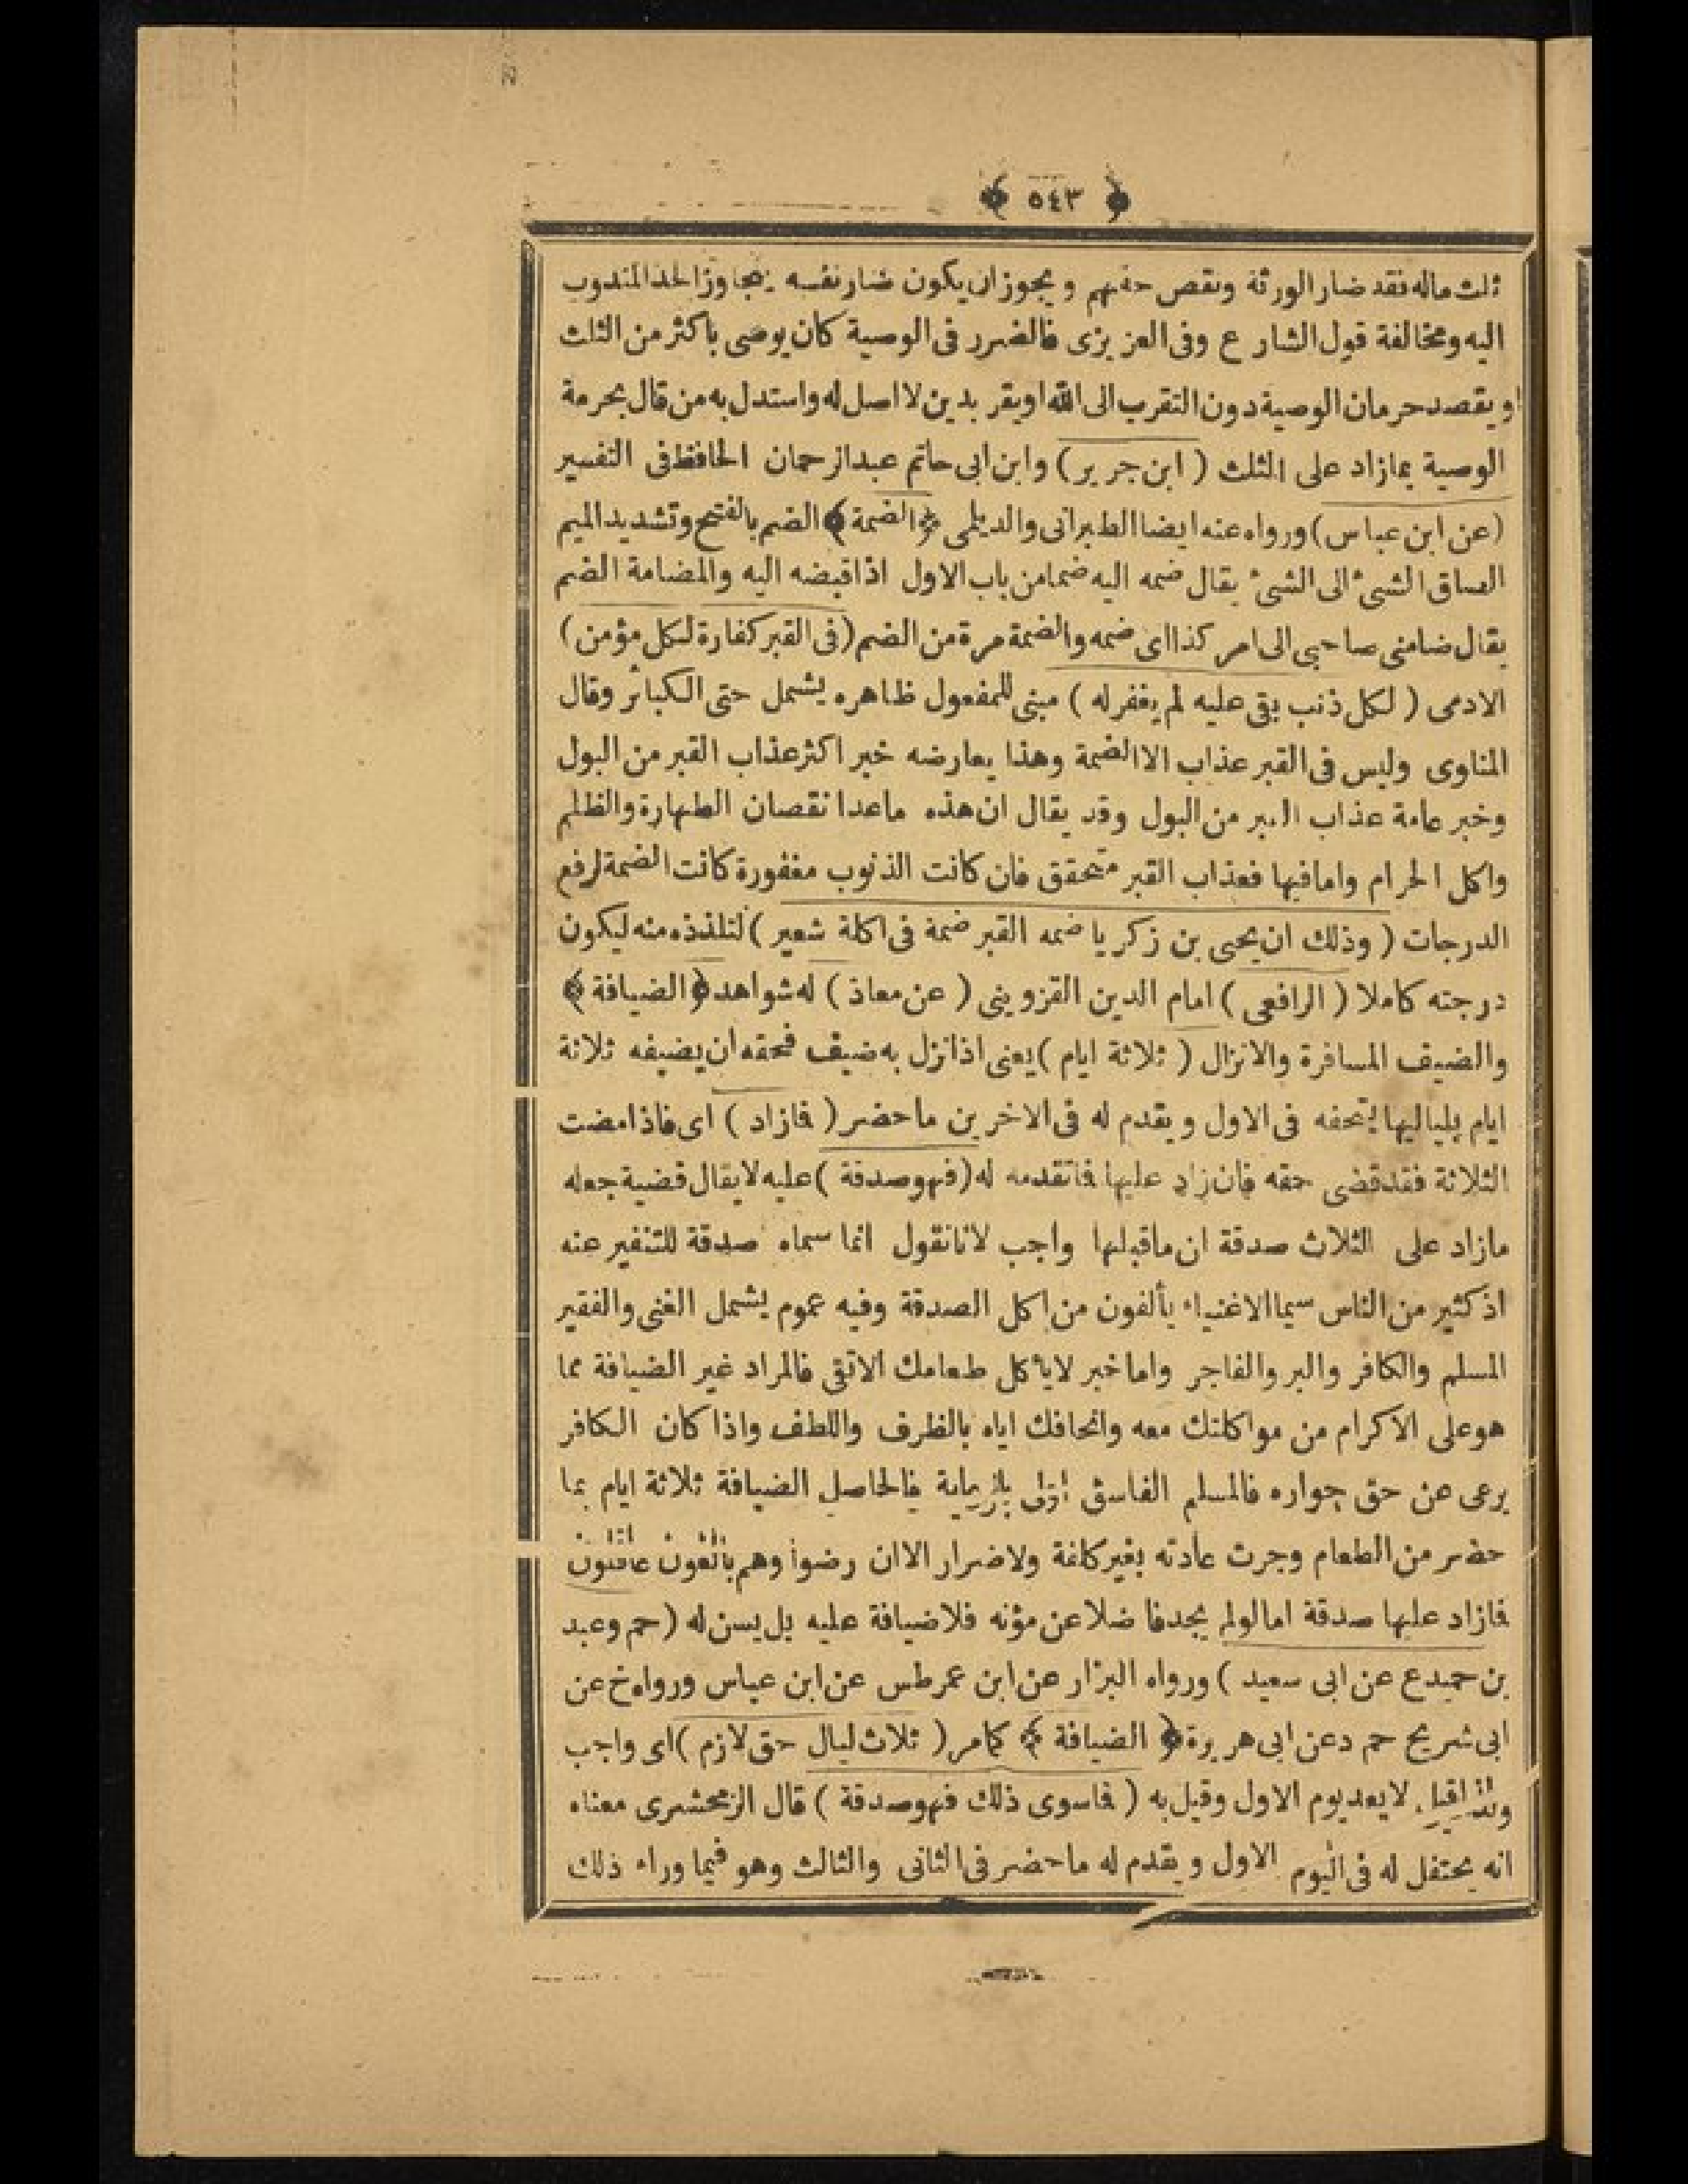 ﴿ ٥٤٣ ﴾
ثلث ماله فقد ضار الورثة ونقص حقهم ويجوز ان يكون ضار نفسه بتجاوز الحد المندوب
اليه ومخالفة قول الشارع وفى العزيزى فالضرر فى الوصية كان يوصى باكثر من الثلث
او يقصد حرمان الوصية دون التقرب الى الله او يقر بدين لا اصل له واستدل به من قال بحرمة
الوصية بمازاد على الثلث ( ابن جرير ) وابن ابى حاتم عبد الرحمان الحافظ فى التفسير
(عن ابن عباس) ورواه عنه ايضا الطبرانى والديلمى ﴿ الضمة ﴾ الضم بالفتح وتشديد الميم
الصاق الشئ الى الشئ يقال ضمه اليه ضما من باب الاول اذا قبضه اليه والمضامة الضم
يقال ضامنى صاحبى الى امر كذا اى ضمه والضمة مرة من الضم (فى القبر كفارة لكل مؤمن)
الادمى ( لكل ذنب بقى عليه لم يغفر له ) مبنى للمفعول ظاهره يشمل حتى الكبائر وقال
المناوى وليس فى القبر عذاب الا الضمة وهذا يعارضه خبر اكثر عذاب القبر من البول
وخبر عامة عذاب القبر من البول وقد يقال ان هذه ماعدا نقصان الطهارة والظلم
واكل الحرام وامافيها فعذاب القبر متحقق فان كانت الذنوب مغفورة كانت الضمة لرفع
الدرجات ( وذلك ان يحيى بن زكريا ضمه القبر ضمة فى اكلة شعير ) لتلذذه منه ليكون
درجته كاملا ( الرافعى ) امام الدين القزوينى ( عن معاذ ) له شواهد ﴿ الضيافة ﴾
والضيف المسافرة والانزال ( ثلاثة ايام ) يعنى اذا نزل به ضيف فحقه ان يضيفه ثلاثة
ايام بلياليها يتحفه فى الاول ويقدم له فى الاخرين ماحضر ( فازاد ) اى فاذا مضت
الثلاثة فقد قضى حقه فان زاد عليها فاتقدمه له (فهو صدقة ) عليه لا يقال قضية جعله
مازاد على الثلاث صدقة ان ماقبلها واجب لانا نقول انما سماه صدقة للتنفير عنه
اذ كثير من الناس سيما الاغنياء يألفون من اكل الصدقة وفيه عموم يشمل الغنى والفقير
المسلم والكافر والبر والفاجر واما خبر لايأكل طعامك الاتقى فالمراد غير الضيافة مما
هو على الاكرام من مواكلتك معه واتحافك اياه بالظرف واللطف واذا كان الكافر
يرعى عن حق جواره فالمسلم الفاسق اولى بالرعاية فالحاصل الضيافة ثلاثة ايام بما
حضر من الطعام وجرت عادته بغير كلفة ولاضرار الا ان رضوا وهم بالغون عاقلون
فازاد عليها صدقة امالولم يجد فاضلا عن مؤنه فلا ضيافة عليه بل يسن له ( حم وعبد
بن حميد ع عن ابى سعيد ) ورواه البزار عن ابن عمر طس عن ابن عباس ورواه خ عن
ابى شريح حم د عن ابى هريرة ﴿ الضيافة ﴾ كامر ( ثلاث ليال حق لازم ) اى واجب
لا يعد يوم الاول وقيل به ( فاسوى ذلك فهو صدقة ) قال الزمحشرى معناه
انه يحتفل له فى اليوم الاول ويقدم له ماحضر فى الثانى والثالث وهو فيما وراء ذلك